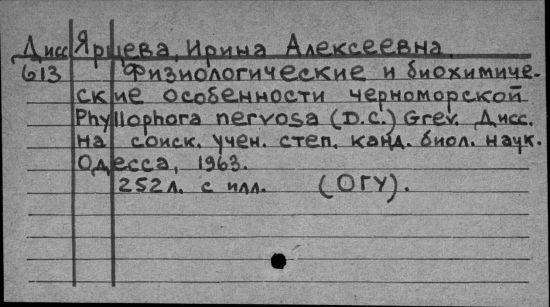 Дисс Ярцева, Ирина Алексеевна.
613 Физиологические и биохимиче-
ские особенности черноморской
Phyllophora nervosa (D.C.) Grev. Дисс.
на соиск. учен. степ. канд. биол. наук.
Одесса, 1963.
252л. с илл. (ОГУ).